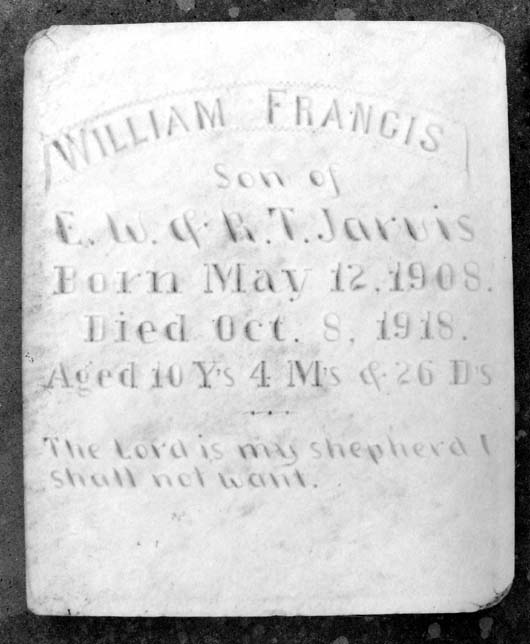 WILLIAM FRANCIS
Son of
E. W. & R. T. Jarvis
Born May 12, 1908.
Died Oct. 8, 1918.
Aged 10 Y's 4 M's & 26 D's
The Lord is my shepherd I
shall not want.